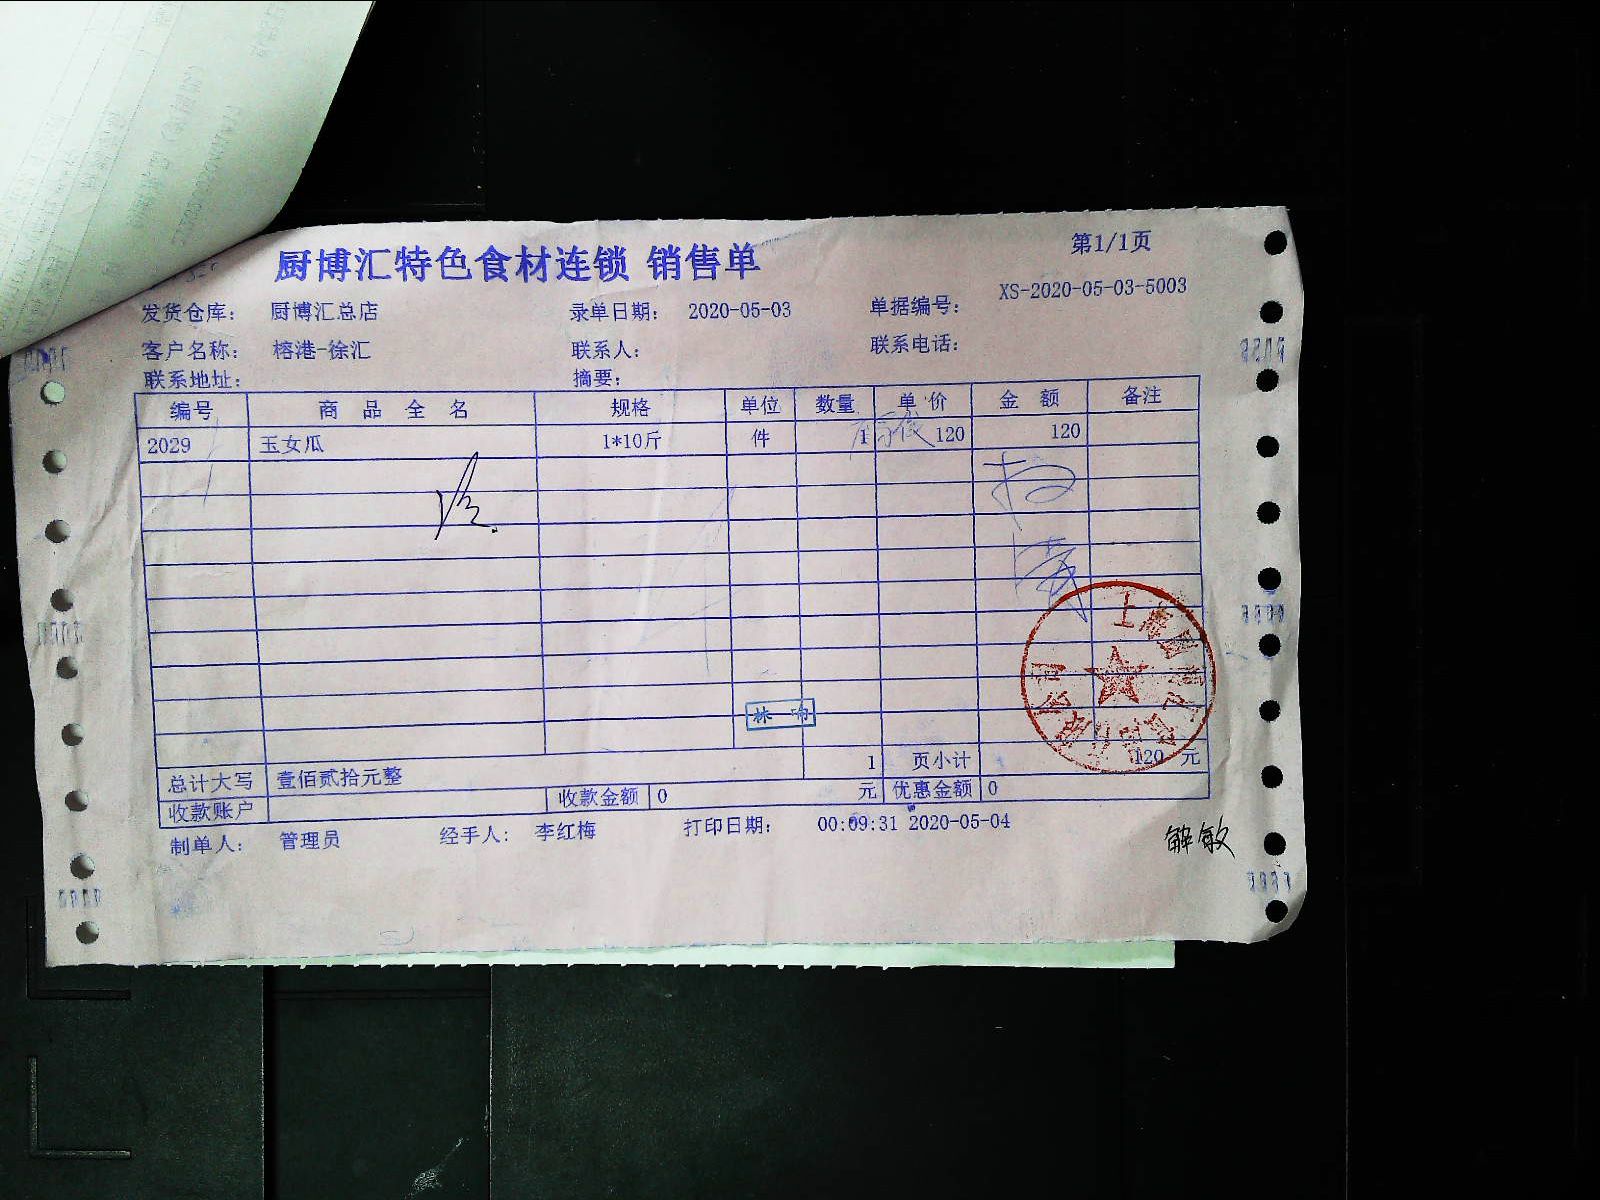 厨博汇特色食材连锁 销售单
第1/1页
发货仓库： 厨博汇总店 录单日期： 2020-05-03 单据编号： XS-2020-05-03-5003
客户名称： 榕港-徐汇 联系人： 联系电话：
联系地址： 摘要：
编号 商品全名 规格 单位 数量 单价 金额 备注
2029 玉女瓜 1*10斤 件 1 120 120
1 页小计 120 元
总计大写 壹佰贰拾元整
收款账户 收款金额 0 元 优惠金额 0
制单人： 管理员 经手人： 李红梅 打印日期： 00:09:31 2020-05-04
解敏